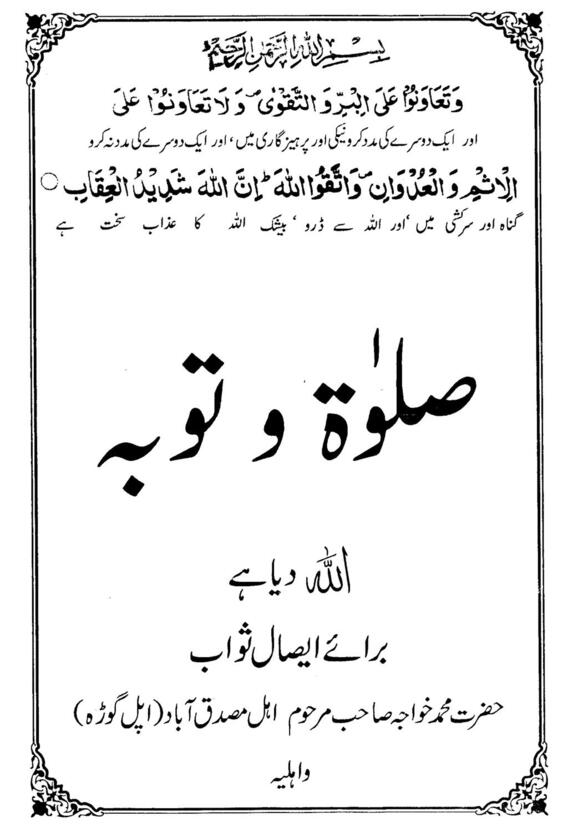 بِسْمِ اللهِ الرَّحْمٰنِ الرَّحِيْمِ
وَتَعَاوَنُوْا عَلَى الْبِرِّ وَالتَّقْوٰى ۖ وَلَا تَعَاوَنُوْا عَلَى
اور ایک دوسرے کی مدد کرو نیکی اور پرہیز گاری میں، اور ایک دوسرے کی مدد نہ کرو
الْاِثْمِ وَالْعُدْوَانِ ۖ وَاتَّقُوا اللهَ ؕ اِنَّ اللهَ شَدِيْدُ الْعِقَابِ ○
گناہ اور سرکشی میں، اور اللہ سے ڈرو، بیشک اللہ کا عذاب سخت ہے
صلوٰۃ و توبہ
اللہ دیا ہے
برائے ایصال ثواب
حضرت محمد خواجہ صاحب مرحوم اہل مصدق آباد (اپل گوڑہ)
واہلیہ